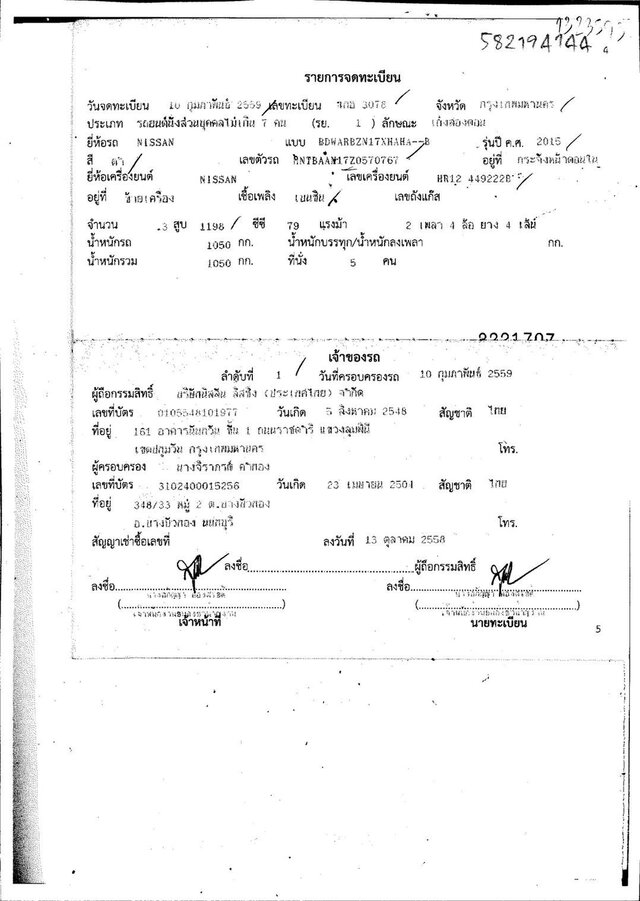 582194144
รายการจดทะเบียน
วันจดทะเบียน 10 กุมภาพันธ์ 2559 เลขทะเบียน 3078 จังหวัด กรุงเทพมหานคร
ประเภท รถยนต์นั่งส่วนบุคคลไม่เกิน 7 คน (รย. 1 ) ลักษณะ เก๋งสองตอน
ยี่ห้อรถ NISSAN แบบ BDWARBZN17XHAHA--B รุ่นปี ค.ศ. 2015
สี ดำ เลขตัวรถ MNTBAAN17Z0570767 อยู่ที่
ยี่ห้อเครื่องยนต์ NISSAN เลขเครื่องยนต์ HR12 449222B
อยู่ที่ ซ้ายเครื่อง เชื้อเพลิง เบนซิน เลขถังแก๊ส
จำนวน 3 สูบ 1198 ซีซี 79 แรงม้า 2 เพลา 4 ล้อ ยาง 4 เส้น
น้ำหนักรถ 1050 กก. น้ำหนักบรรทุก/น้ำหนักลงเพลา กก.
น้ำหนักรวม 1050 กก. ที่นั่ง 5 คน
เจ้าของรถ
ลำดับที่ 1 วันที่ครอบครองรถ 10 กุมภาพันธ์ 2559
ผู้ถือกรรมสิทธิ์ บริษัทนิสสัน ลีสซิ่ง (ประเทศไทย) จำกัด
เลขที่บัตร 0105548101977 วันเกิด 5 สิงหาคม 2548 สัญชาติ ไทย
ที่อยู่ 161 อาคารนันทวัน ชั้น 1 ถนนราชดำริ แขวงลุมพินี
เขตปทุมวัน กรุงเทพมหานคร โทร.
ผู้ครอบครอง นางจิราภรณ์
เลขที่บัตร 3102400015256 วันเกิด 23 เมษายน 2504 สัญชาติ ไทย
ที่อยู่ 348/33 หมู่ 2 ต.บางบัวทอง
อ.บางบัวทอง นนทบุรี โทร.
สัญญาเช่าซื้อเลขที่ ลงวันที่ 13 ตุลาคม 2558
ลงชื่อ ผู้ถือกรรมสิทธิ์
ลงชื่อ ลงชื่อ
เจ้าหน้าที่ นายทะเบียน
5